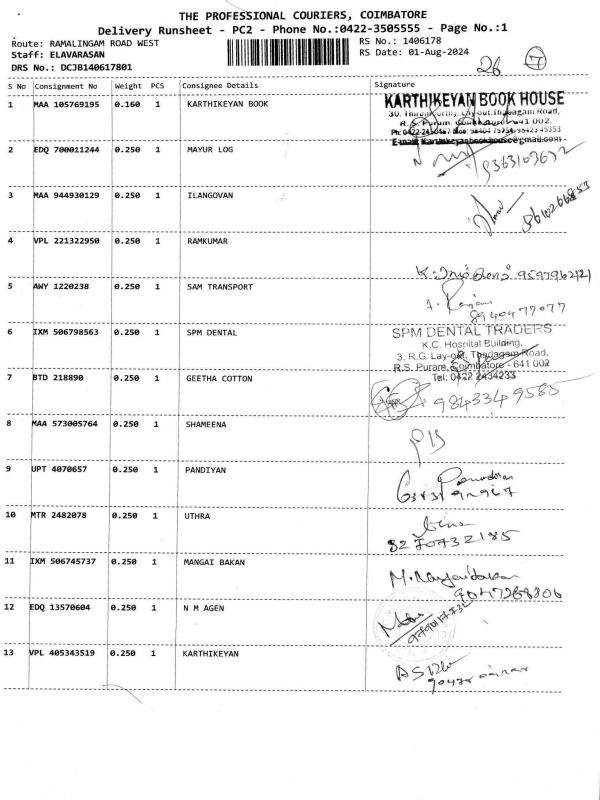 THE PROFESSIONAL COURIERS, COIMBATORE
Delivery Runsheet - PC2 - Phone No.:0422-3505555 - Page No.:1
Route: RAMALINGAM ROAD WEST
Staff: ELAVARASAN
DRS No.: DCJB140617801
RS No.: 1406178
RS Date: 01-Aug-2024
26 7
S No Consignment No Weight PCS Consignee Details Signature
1 MAA 105769195 0.160 1 KARTHIKEYAN BOOK
KARTHIKEYAN BOOK HOUSE
R.S. Puram, 641 002.
2 EDQ 700011244 0.250 1 MAYUR LOG
9363103632
3 MAA 944930129 0.250 1 ILANGOVAN
4 VPL 221322950 0.250 1 RAMKUMAR
5 AWY 1220238 0.250 1 SAM TRANSPORT
8940477077
6 IXM 506798563 0.250 1 SPM DENTAL
SPM DENTAL TRADERS
K.C. Hospital Building,
3, R.G. Lay-out, Thadagam Road,
R.S. Puram, Coimbatore - 641 002
Tel: 0422 2434233
7 BTD 218890 0.250 1 GEETHA COTTON
9843349585
8 MAA 573005764 0.250 1 SHAMEENA
9 UPT 4070657 0.250 1 PANDIYAN
10 MTR 2482078 0.250 1 UTHRA
8270732185
11 IXM 506745737 0.250 1 MANGAI BAKAN
9047268806
12 EDQ 13570604 0.250 1 N M AGEN
13 VPL 405343519 0.250 1 KARTHIKEYAN